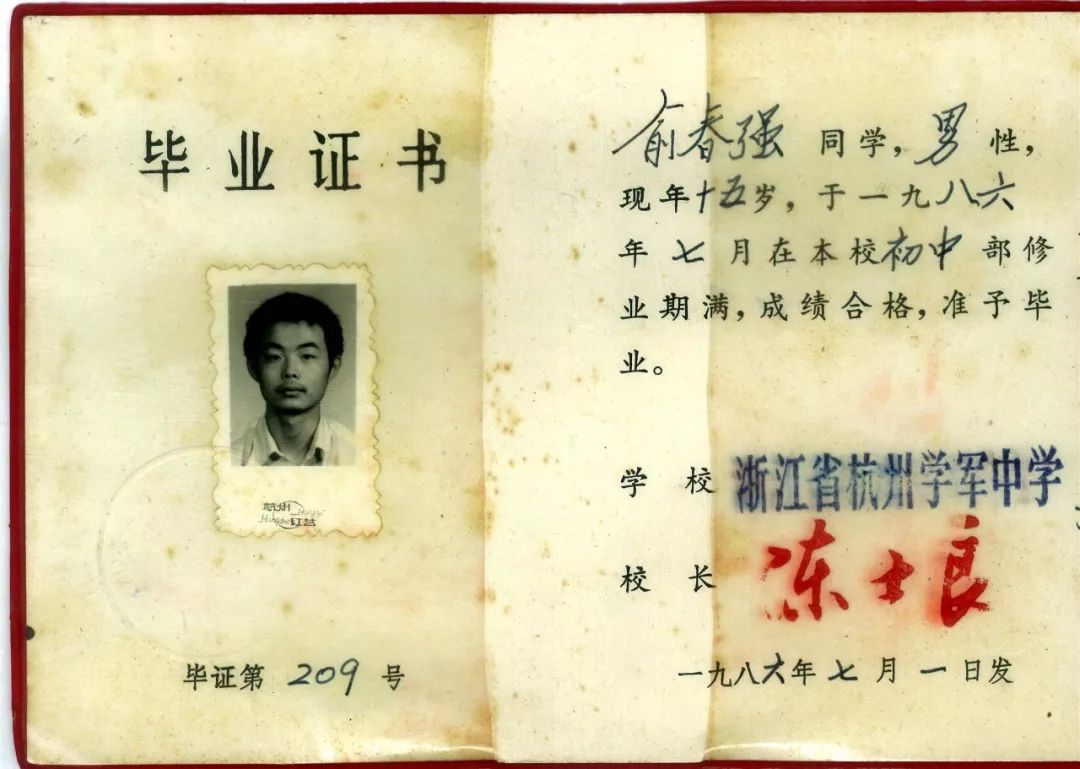 毕业证书
杭州
红艺
毕证第 209 号
俞春强 同学，男 性，
现年十五岁，于一九八六
年 七 月在本校初中 部修
业期满，成绩合格，准予毕
业。
学 校 浙江省杭州学军中学
校 长 陈士良
一九八六年 七 月 一 日发